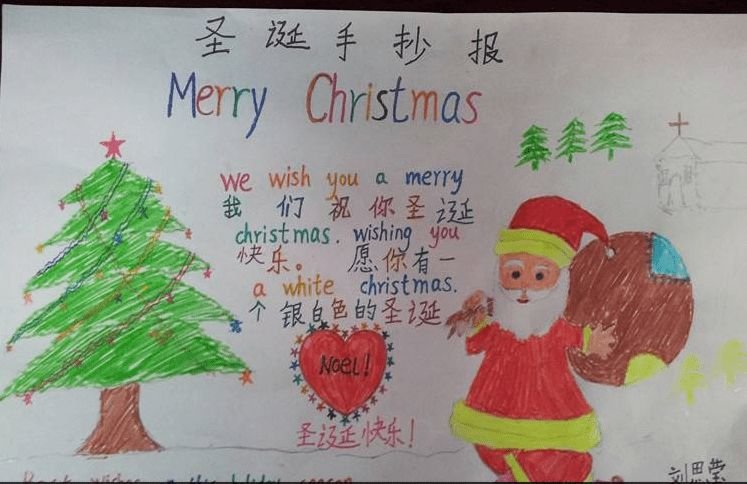 圣诞手抄报
Merry Christmas
We wish you a merry
我们祝你圣诞
christmas. wishing you
快乐。 愿你有一
a white christmas.
个银白色的圣诞
Noel!
圣诞快乐!
刘思莹